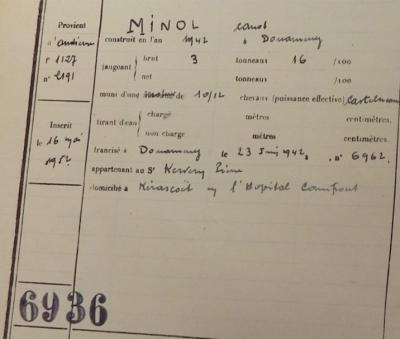 Provient
d'ancienne
f° 1127
n° 2191
Inscrit
le 16 mai
1952
MINOL canot
construit en l'an 1942 à Douarnenez
jaugeant brut 3 tonneaux 16 /100
net tonneaux /100
muni d'une de 10/12 chevaux (puissance effective)
tirant d'eau chargé mètres centimètres.
non chargé mètres centimètres.
francisé à Douarnenez le 23 Juin 1942, n° 6962.
appartenant au Sr
domicilié à l'Hopital Camfrout
6936